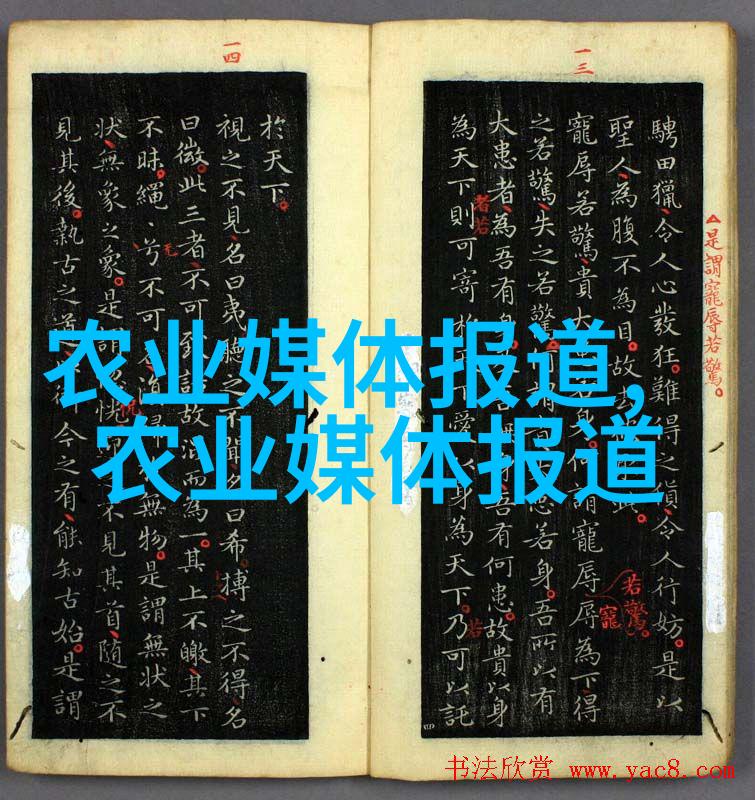 一三
是謂寵辱若驚。
騁田獵令人心發狂。難得之貨令人行妨。是以
聖人為腹不為目。故去此。
寵辱若驚貴大身。何謂寵辱辱為下得
之若驚失之若驚患若身。吾所以有
大患者為吾有身吾有何患。故貴以身
為天下則可寄於愛以身為天下。乃可以託
者若
若驚。
寵
若
一四
於天下。
視之不見名曰夷聽之不聞名曰希搏之不得名
曰微此三者不可致詰故混而為一。其上不皦其下
不昧。繩〻兮不可歸無物。是謂無狀之
狀無象之象。是謂恍不見其首隨之不
見其後。執古之道今之有能知古始。是謂
农业媒体报道,
农业媒体报道
书法欣赏 www.yac8.com